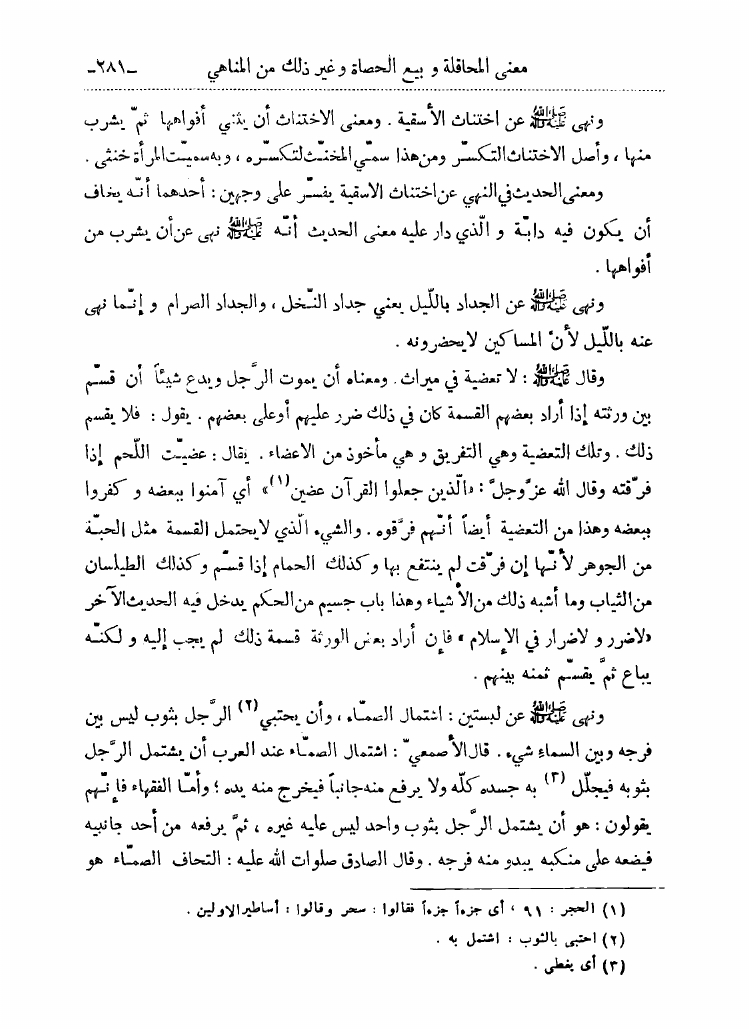 معنى المحاقلة و بيع الحصاة و غير ذلك من المناهي -٢٨١-
ونهى ﷺ عن اختناث الأسقية . ومعنى الاختناث أن يثني أفواهها ثمّ يشرب
منها ، وأصل الاختناث التكسّر ومن هذا سمّي المخنّث لتكسّره ، وبه سميّت المرأة خنثى .
ومعنى الحديث في النهي عن اختناث الاسقية يفسّر على وجهين : أحدهما أنّه يخاف
أن يكون فيه دابّة و الّذي دار عليه معنى الحديث أنّه ﷺ نهى عن أن يشرب من
أفواهها .
ونهى ﷺ عن الجداد باللّيل يعني جداد النّخل ، والجداد الصرام و إنّما نهى
عنه باللّيل لأنّ المساكين لا يحضرونه .
وقال ﷺ : لا تعضية في ميراث . ومعناه أن يموت الرَّجل ويدع شيئاً أن قسّم
بين ورثته إذا أراد بعضهم القسمة كان في ذلك ضرر عليهم أو على بعضهم . يقول : فلا يقسم
ذلك . وتلك التعضية وهي التفريق و هي مأخوذ من الاعضاء . يقال : عضيّت اللّحم إذا
فرّقته وقال الله عزَّ وجلَّ : «الّذين جعلوا القرآن عضين (١)» أي آمنوا ببعضه و كفروا
ببعضه وهذا من التعضية أيضاً أنّهم فرَّقوه . والشيء الّذي لا يحتمل القسمة مثل الحبّة
من الجوهر لأنّها إن فرّقت لم ينتفع بها و كذلك الحمام إذا قسّم و كذلك الطيلسان
من الثياب وما أشبه ذلك من الأشياء وهذا باب جسيم من الحكم يدخل فيه الحديث الآخر
«لاضرر و لاضرار في الإسلام» فإن أراد بعض الورثة قسمة ذلك لم يجب إليه و لكنّه
يباع ثمَّ يقسّم ثمنه بينهم .
ونهى ﷺ عن لبستين : اشتمال الصمّاء ، وأن يحتبي (٢) الرَّجل بثوب ليس بين
فرجه وبين السماء شيء . قال الأصمعيّ : اشتمال الصمّاء عند العرب أن يشتمل الرَّجل
بثوبه فيجلّل (٣) به جسده كلّه ولا يرفع منه جانباً فيخرج منه يده ؛ وأمّا الفقهاء فإنّهم
يقولون : هو أن يشتمل الرَّجل بثوب واحد ليس عليه غيره ، ثمَّ يرفعه من أحد جانبيه
فيضعه على منكبه يبدو منه فرجه . وقال الصادق صلوات الله عليه : التحاف الصمّاء هو
(١) الحجر : ٩١ ، أى جزءاً جزءاً فقالوا : سحر وقالوا : أساطير الاولين .
(٢) احتبى بالثوب : اشتمل به .
(٣) أى يغطى .